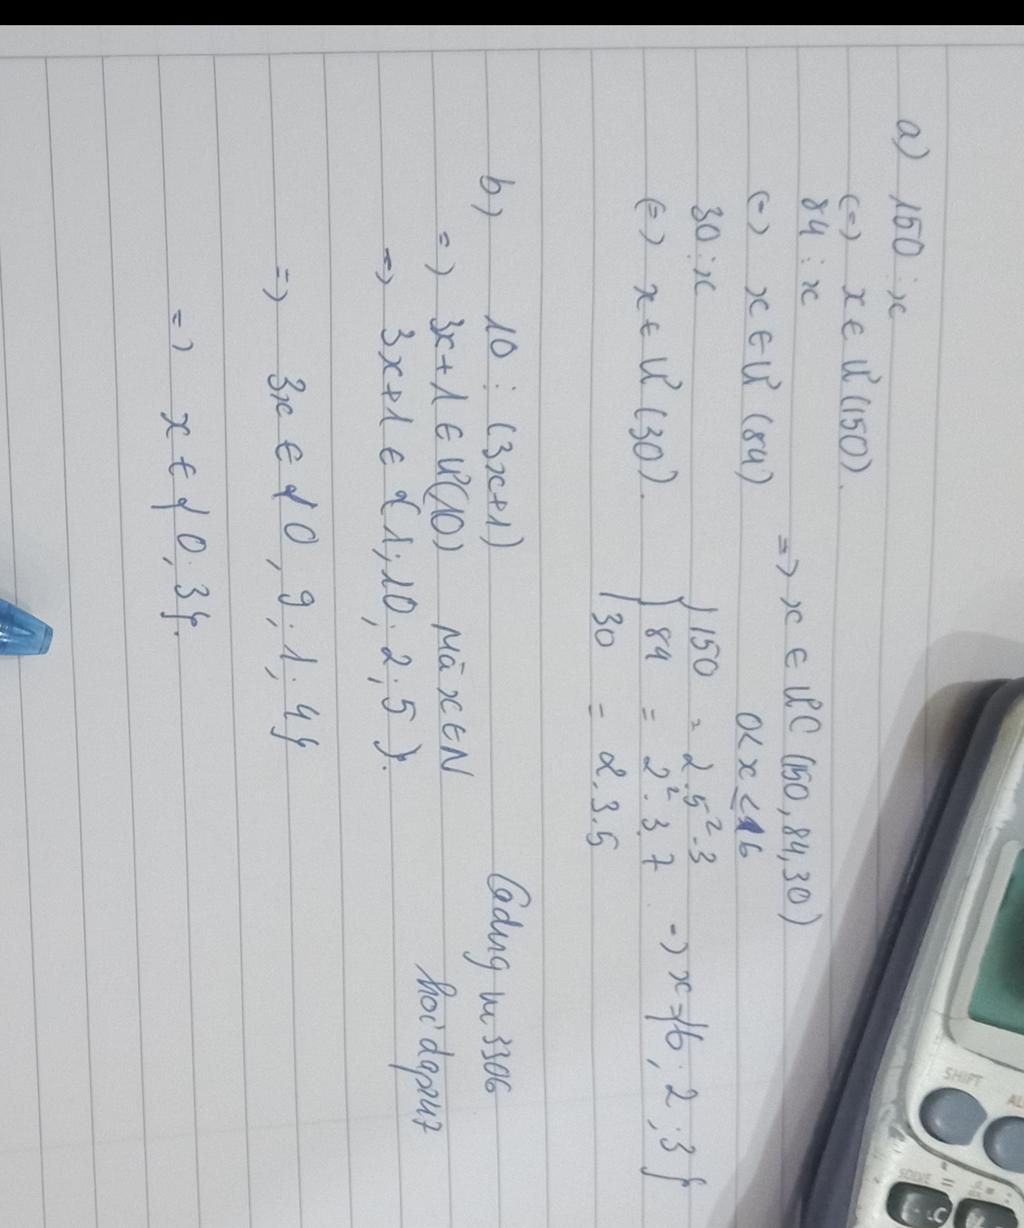 a) 150 ⋮ x
(=) x ∈ Ư(150).
84 ⋮ x
(=) x ∈ Ư (84)
=> x ∈ ƯC (150, 84, 30)
30 ⋮ x
0 < x < 16
(=) x ∈ Ư (30).
{ 150 = 2.5².3
84 = 2².3.7
30 = 2.3.5
=> x = { 6; 2; 3 }
b) 10 ⋮ (3x+1)
=) 3x+1 ∈ Ư(10) Mà x∈N
=) 3x+1 ∈ {1; 10; 2; 5}.
=) 3x ∈ { 0; 9; 1; 4}
=) x ∈ { 0; 3}.
3306
hoidap247
SHIFT
SOLVE =